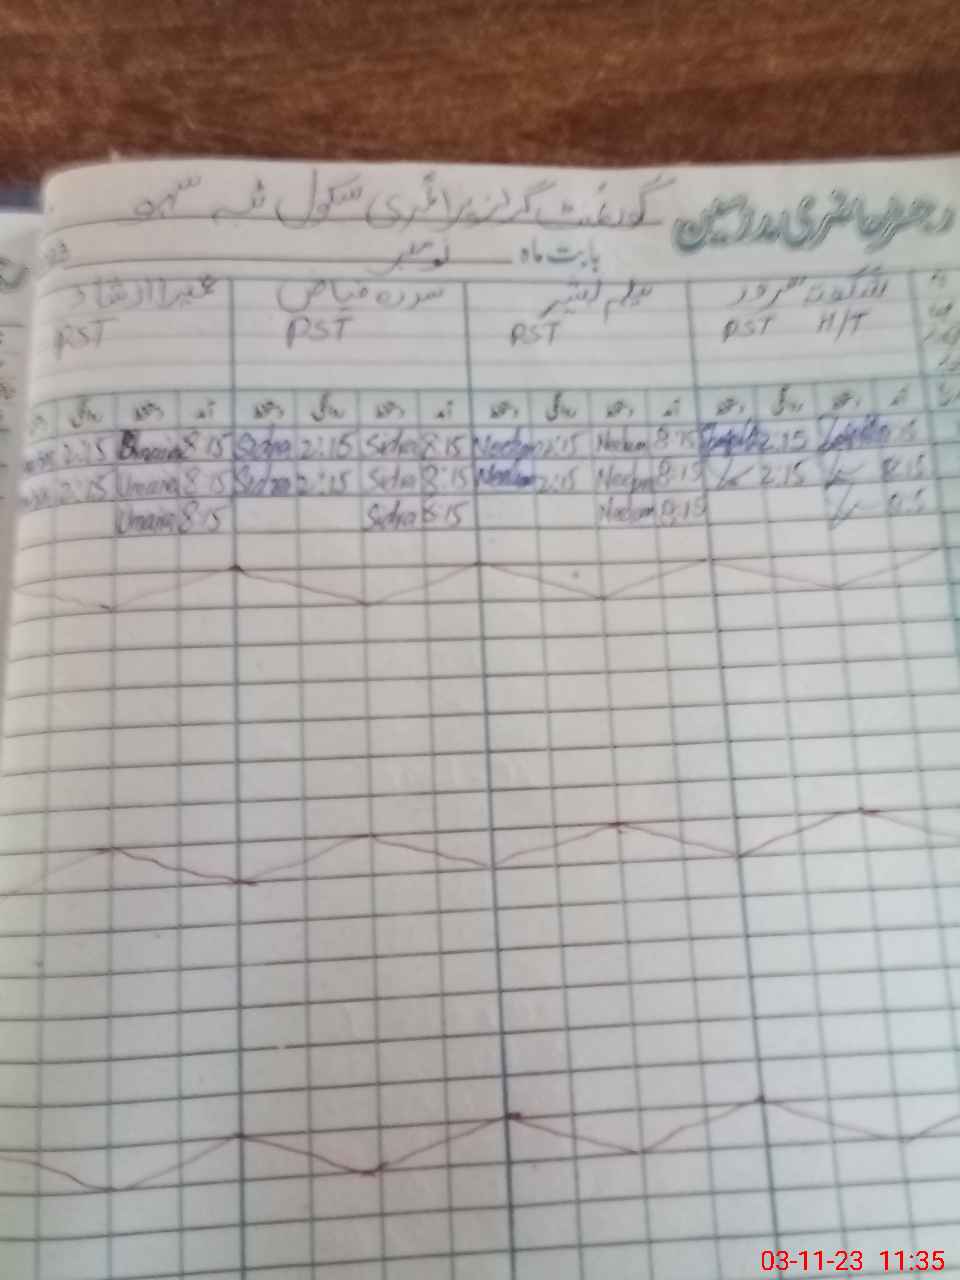 رجسٹر حاضری مدرسین گورنمنٹ گرلز پرائمری سکول
بابت ماہ نومبر 23
شگفتہ سرور نیلم بشیر سدرہ فیاض عمیرا ارشاد
PST H/T PST PST PST
آمد دستخط روانگی دستخط آمد دستخط روانگی دستخط آمد دستخط روانگی دستخط آمد دستخط روانگی
2:15 8:15 Sidra 2:15 Sidra 8:15 Neelam 2:15 Neelam 8:15 2:15 8:15
2:15 Umaira 8:15 Sidra 2:15 Sidra 8:15 Neelam 2:15 Neelam 8:15 2:15 8:15
Umaira 8:15 Sidra 8:15 Neelam 8:15 8:15
03-11-23 11:35